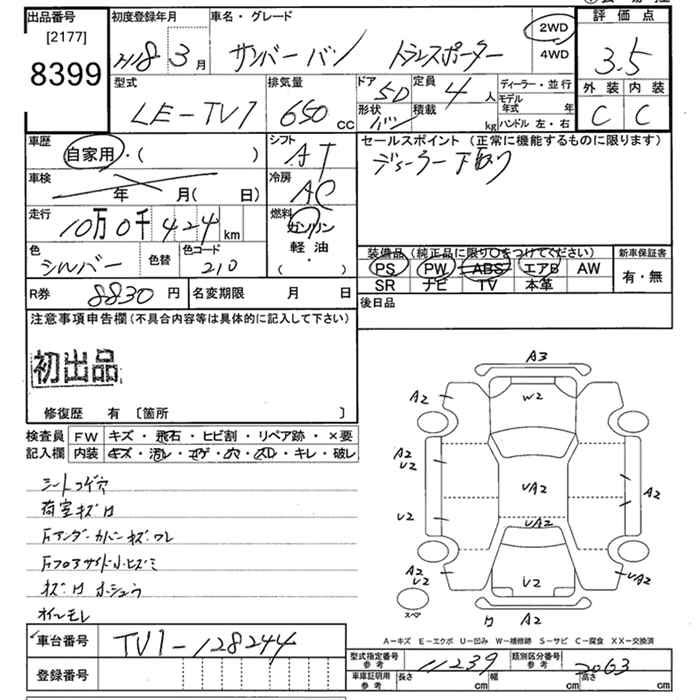 出品番号
[2177]
8399
初度登録年月
H18 3月
車名・グレード
サンバーバン トランスポーター
2WD
4WD
評価点
3.5
外装 内装
C C
型式
LE-TV1
排気量
650 cc
ドア
5D
定員
4人
形状
バン
積載
kg
ディーラー・並行
モデル年式 年
ハンドル 左・右
車歴
自家用・( )
車検
年 月( 日)
走行
10万0千424km
色
シルバー
色替
色コード
210
シフト
AT
冷房
AC
燃料
ガソリン
軽油
( ・ )
セールスポイント(正常に機能するものに限ります)
ディーラー下取り
装備品(純正品に限り○をつけてください)
PS PW ABS エアB AW
SR ナビ TV 本革
新車保証書
有・無
R券
8830円
名変期限 月 日
後日品
注意事項申告欄(不具合内容等は具体的に記入して下さい)
初出品
修復歴 有 〔箇所 〕
検査員 FW キズ・飛石・ヒビ割・リペア跡・×要
記入欄 内装 キズ・汚レ・コゲ・穴・スレ・キレ・破レ
シートコゲ穴
荷室キズ
Fアンダーカバーキズワレ
Fフロアサイド小ヒズミ
オイルモレ
A3
A2 W2
A2
A2 U2
UA2
A2
U2
UA2
A2 U2
U2
A2 U2
スペア
A2
A-キズ E-エクボ U-凹み W-補修跡 S-サビ C-腐食 XX-交換済
車台番号
TV1-128244
登録番号
型式指定番号 参考
11239
類別区分番号 参考
2063
車庫証明用 参考
長さ cm 幅 cm 高さ cm